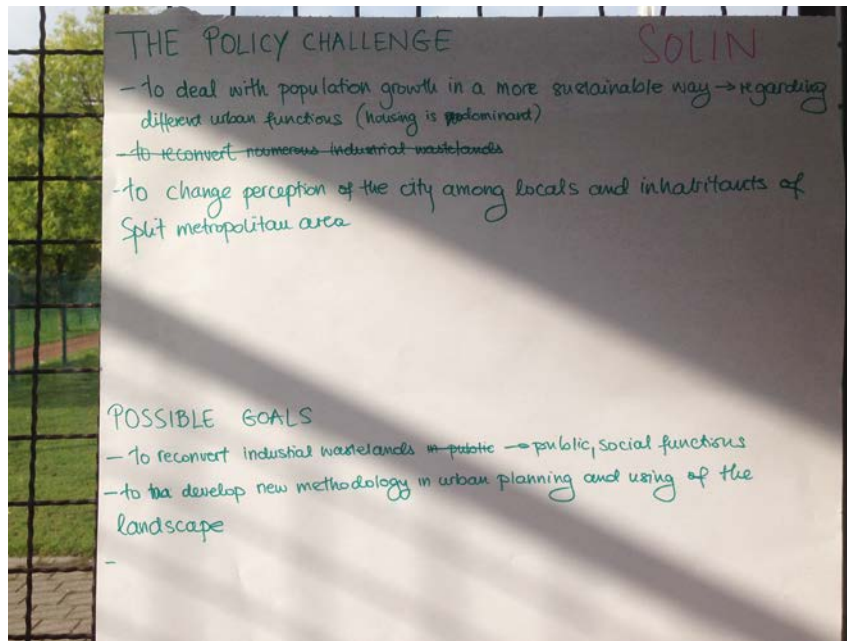 THE POLICY CHALLENGE SOLIN
- to deal with population growth in a more sustainable way → regarding
different urban functions (housing is predominant)
- to reconvert noumerous industrial wastelands
- to change perception of the city among locals and inhabitants of
Split metropolitan area
POSSIBLE GOALS
- to reconvert industrial wastelands in public → public, social functions
- to develop new methodology in urban planning and using of the
landscape
-